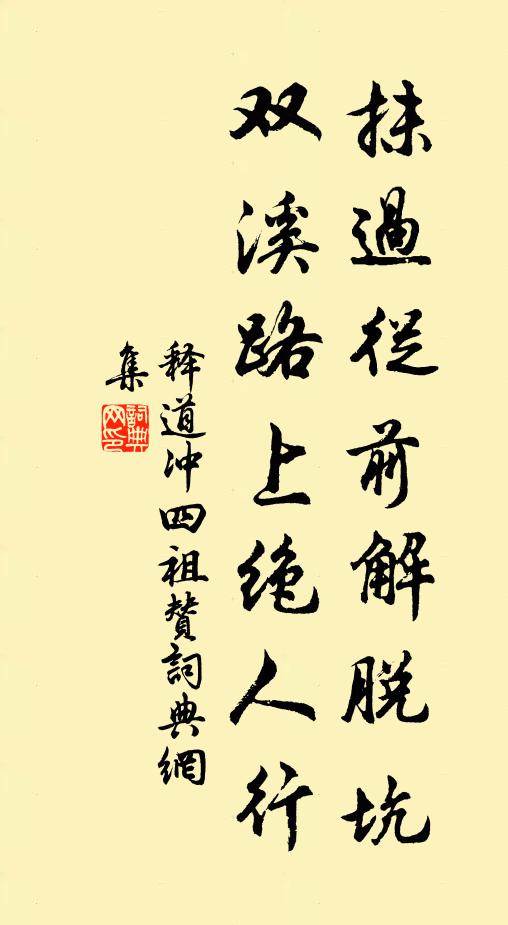 抹過從前解脱坑
双溪路上絶人行
释道冲四祖赞詞典網
集
詞典网印